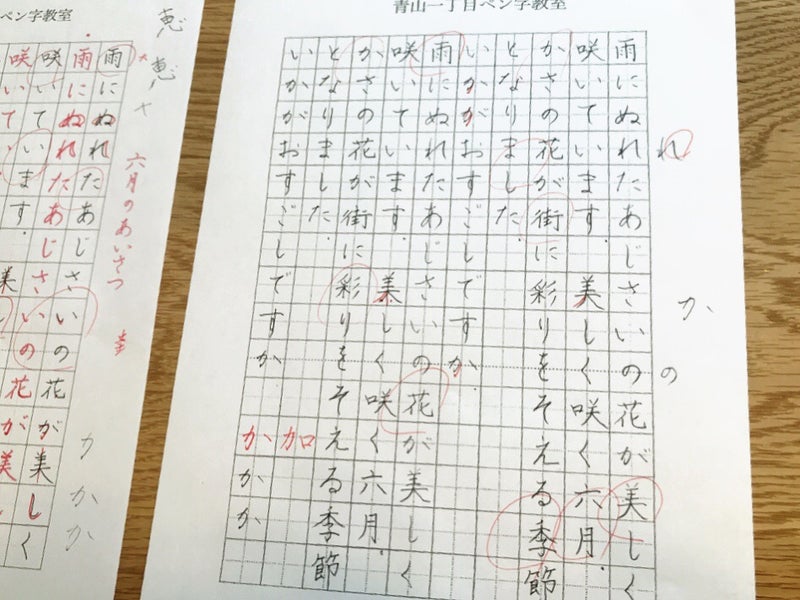 青山一丁目ペン字教室
れ
か
の
雨にぬれたあじさいの花が美しく
咲いています。美しく咲く六月。
かさの花が街に彩りをそえる季節
となりました。
いかがおすごしですか。
雨にぬれたあじさいの花が美しく
咲いています。美しく咲く六月。
かさの花が街に彩りをそえる季節
となりました。
加
いかがおすごしですか
か
か
か
ペン字教室
恵
恵
六月のあいさつ
カ
か
か
雨にぬれたあじさいの花が美しく
雨にぬれたあじさいの花が美し
咲いています。美
咲いて